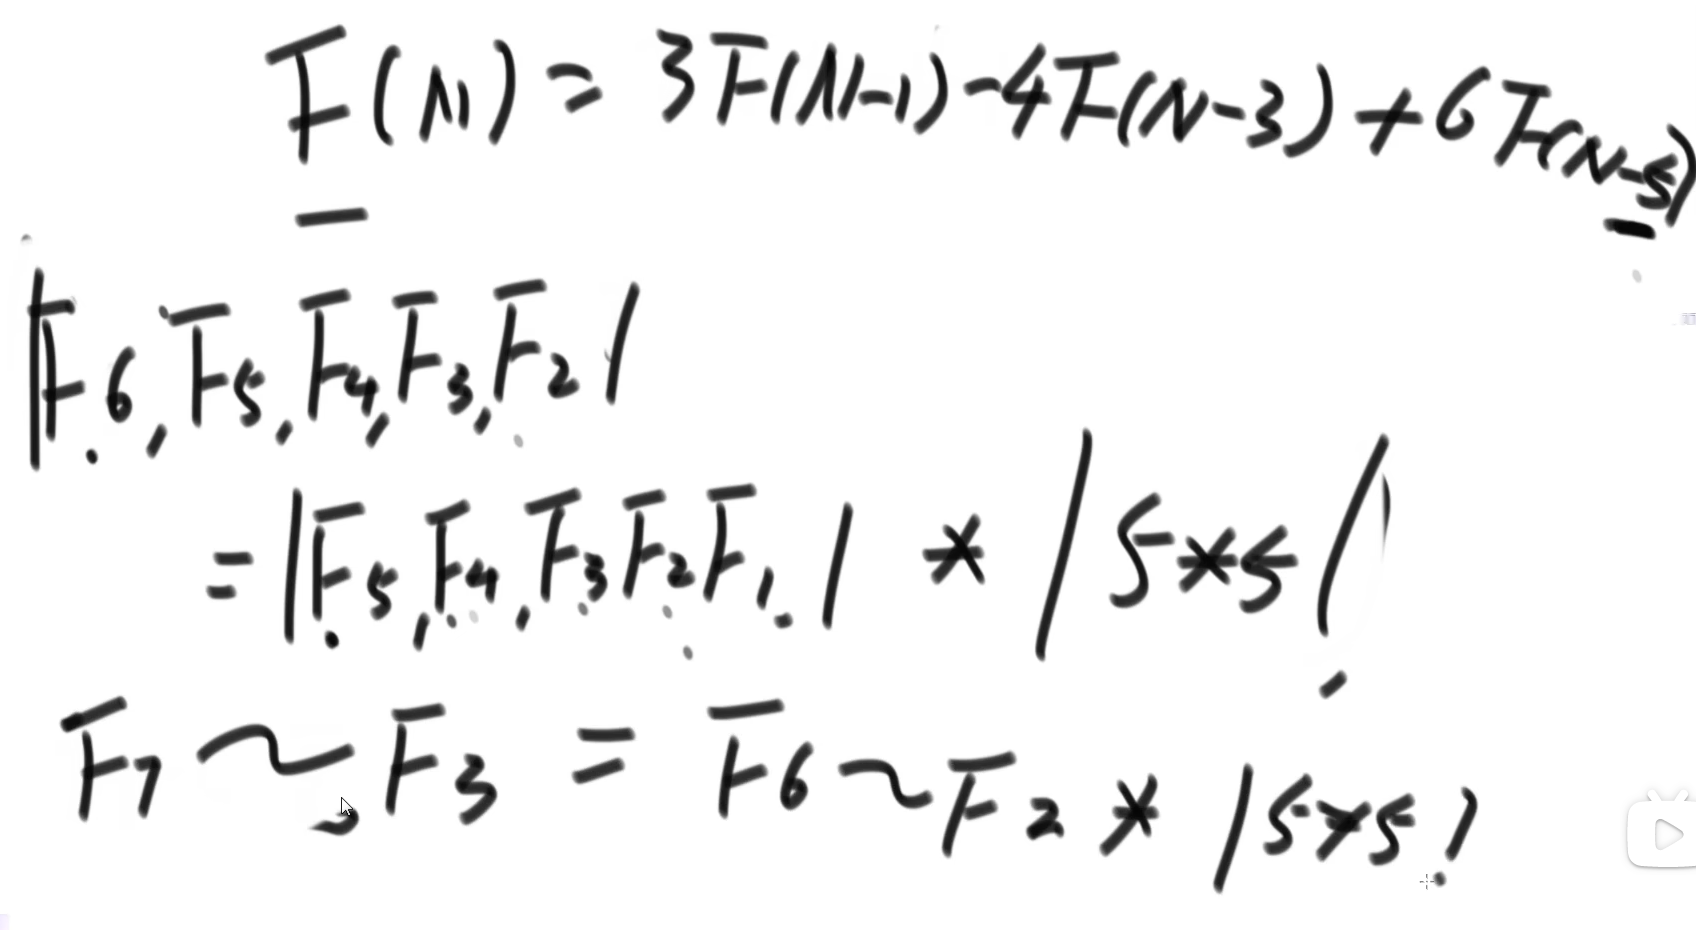 F(N) = 3F(N-1) - 4F(N-3) + 6F(N-5)
|F6, F5, F4, F3, F2|
= |F5, F4, F3 F2 F1| * |5*5|
F7 ~ F3 = F6 ~ F2 * |5*5|